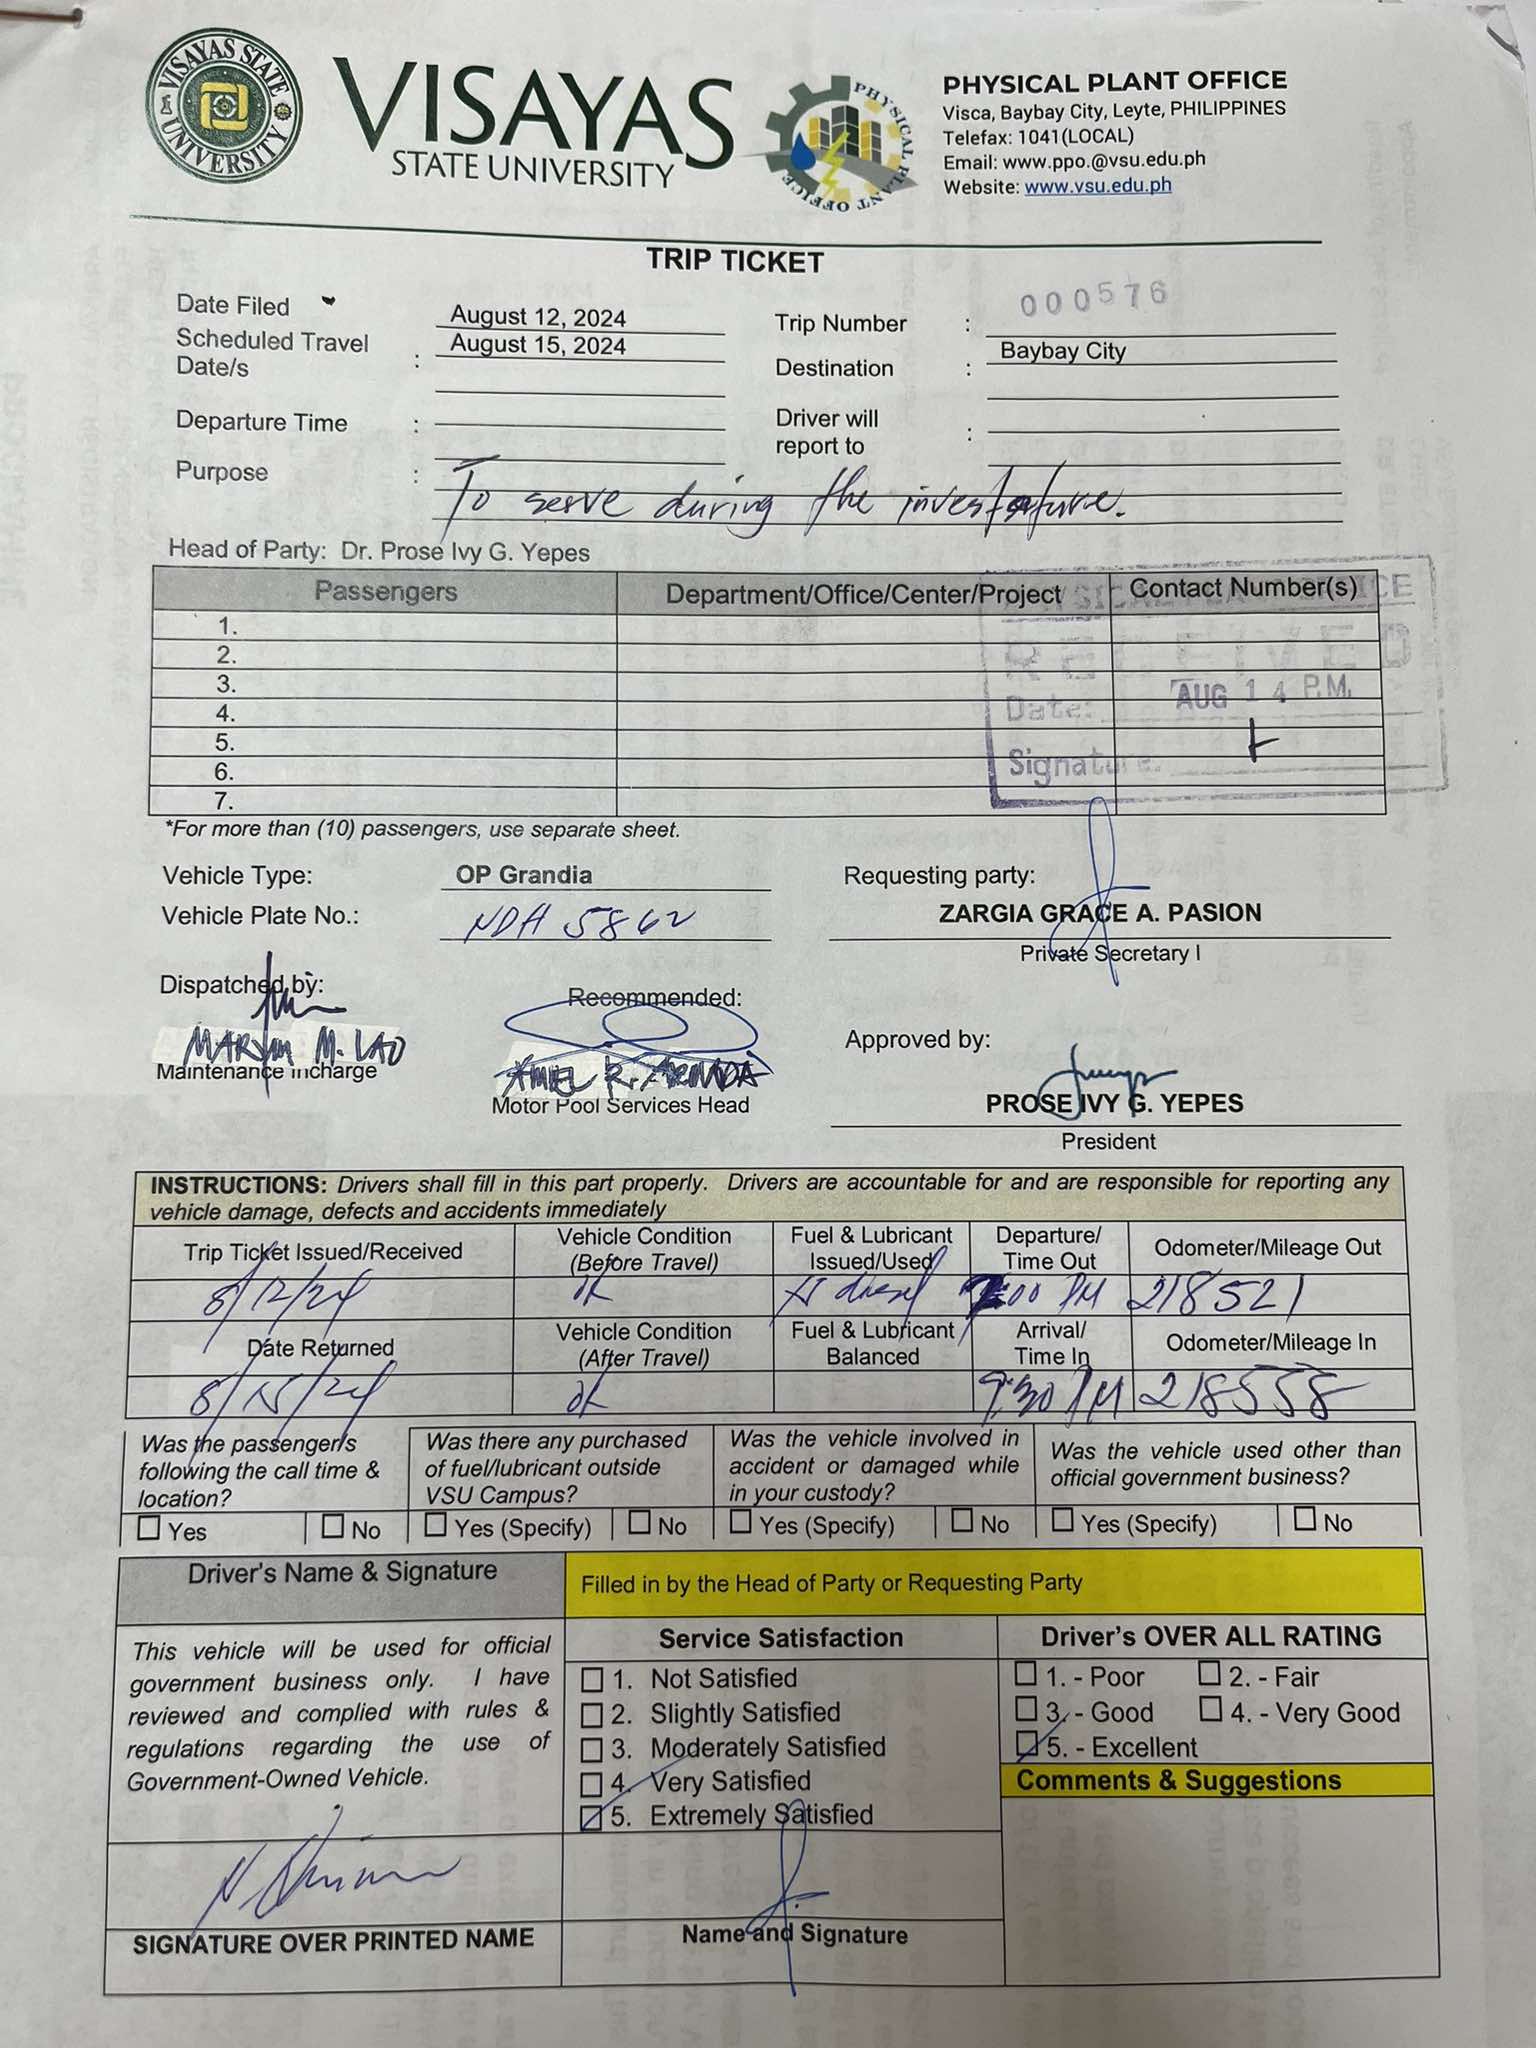 VISAYAS STATE UNIVERSITY
VISAYAS
STATE UNIVERSITY
PHYSICAL PLANT OFFICE
PHYSICAL PLANT OFFICE
Visca, Baybay City, Leyte, PHILIPPINES
Telefax: 1041(LOCAL)
Email: www.ppo.@vsu.edu.ph
Website: www.vsu.edu.ph
TRIP TICKET
Date Filed August 12, 2024 Trip Number : 000576
Scheduled Travel Date/s : August 15, 2024 Destination : Baybay City
Departure Time : Driver will report to :
Purpose : To serve during the investature.
Head of Party: Dr. Prose Ivy G. Yepes
Passengers Department/Office/Center/Project Contact Number(s)
1.
2.
3.
4.
5.
6.
7.
RECEIVED
Date: AUG 14 P.M.
Signature:
*For more than (10) passengers, use separate sheet.
Vehicle Type: OP Grandia Requesting party:
Vehicle Plate No.: NDH 5862 ZARGIA GRACE A. PASION
Private Secretary I
Dispatched by: Recommended: Approved by:
M. LAO
Maintenance Incharge
R.
Motor Pool Services Head
PROSE IVY G. YEPES
President
INSTRUCTIONS: Drivers shall fill in this part properly. Drivers are accountable for and are responsible for reporting any
vehicle damage, defects and accidents immediately
Trip Ticket Issued/Received Vehicle Condition (Before Travel) Fuel & Lubricant Issued/Used Departure/ Time Out Odometer/Mileage Out
8/12/24 ok diesel 00 PM 218521
Date Returned Vehicle Condition (After Travel) Fuel & Lubricant Balanced Arrival/ Time In Odometer/Mileage In
8/15/24 ok 9:30 PM 218558
Was the passenger's following the call time & location?
Was there any purchased of fuel/lubricant outside VSU Campus?
Was the vehicle involved in accident or damaged while in your custody?
Was the vehicle used other than official government business?
Yes No Yes (Specify) No Yes (Specify) No Yes (Specify) No
Driver's Name & Signature
Filled in by the Head of Party or Requesting Party
This vehicle will be used for official
government business only. I have
reviewed and complied with rules &
regulations regarding the use of
Government-Owned Vehicle.
Service Satisfaction
1. Not Satisfied
2. Slightly Satisfied
3. Moderately Satisfied
4. Very Satisfied
5. Extremely Satisfied
Driver's OVER ALL RATING
1. - Poor 2. - Fair
3. - Good 4. - Very Good
5. - Excellent
Comments & Suggestions
SIGNATURE OVER PRINTED NAME
Name and Signature